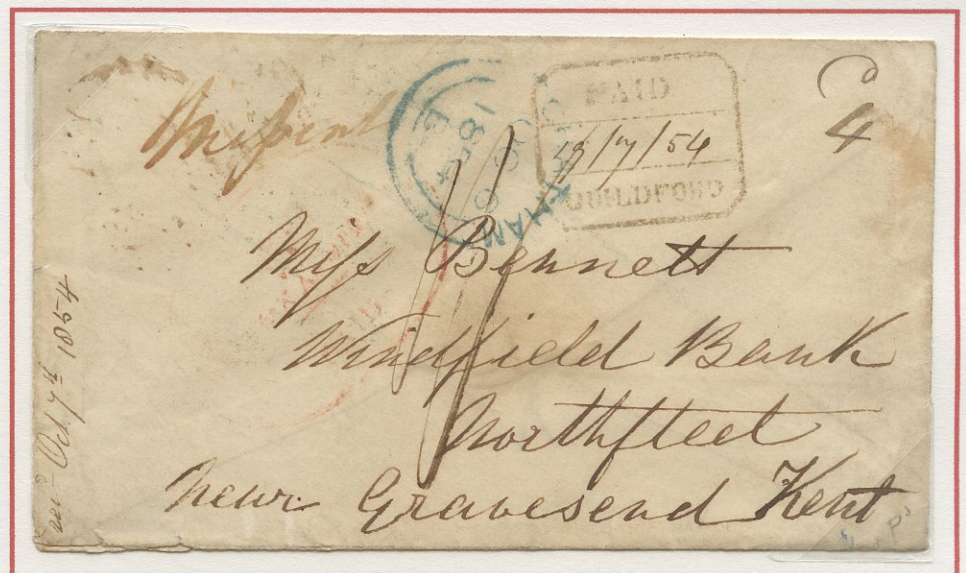 Unpaid
PAID
18/7/54
GUILDFORD
4
Miss Bennett
Windfield Bank
Northfleet
near Gravesend Kent
recd Oct. 7th 1854